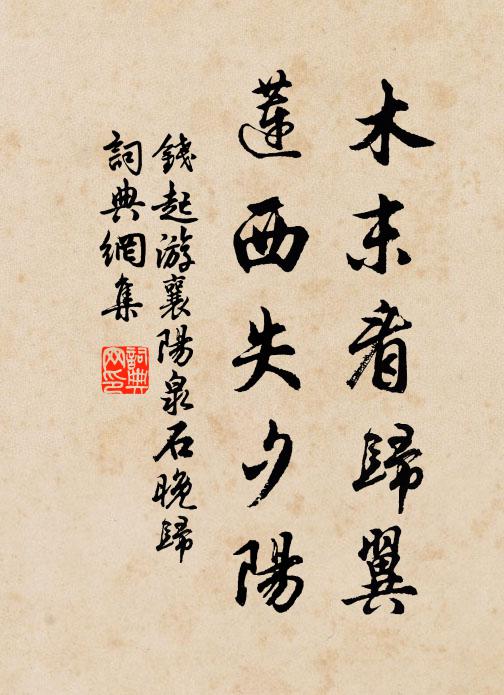 木末看歸翼
蓮西失夕陽
錢起游襄陽泉石晚歸
詞典網集
詞典网印